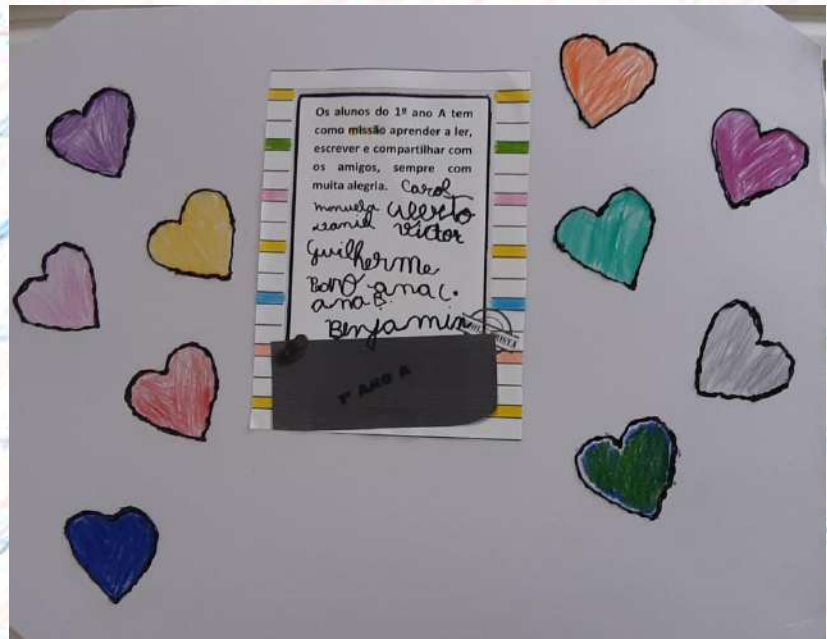 Os alunos do 1º ano A tem
como missão aprender a ler,
escrever e compartilhar com
os amigos, sempre com
muita alegria. Carol
manuela
Daniel Victor
Guilherme
ana C.
ana B.
Benjamin
1º ANO A